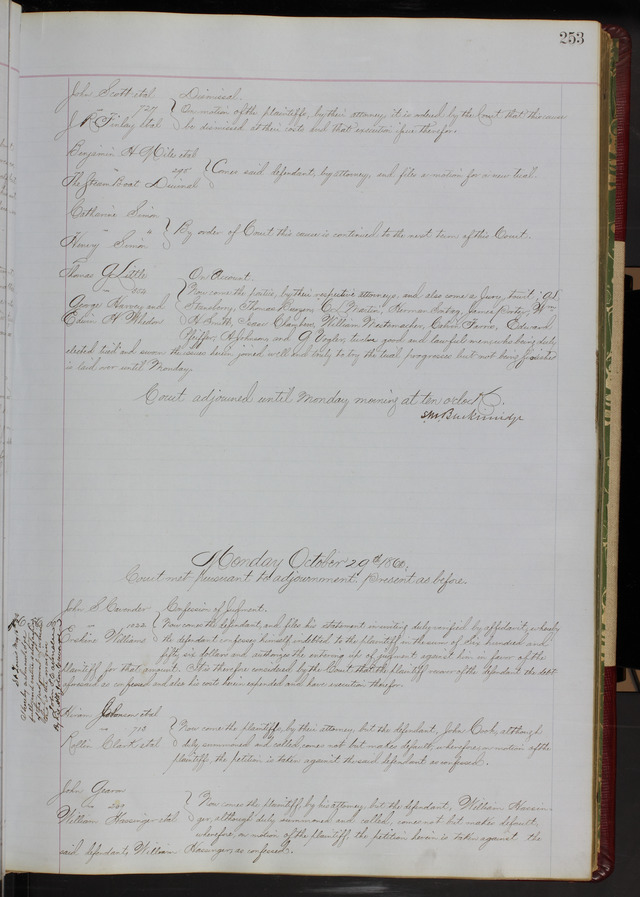 253
John Scott etal Dismissal.
" 727 On motion of the plaintiffs, by their attorney, it is ordered by the Court that this cause
J. R. Finlay etal be dismissed at their costs and that execution issue therefor.
Benjamin H. Mils etal
" 290 Comes said defendant, by attorney, and files a motion for a new trial.
The Steam Boat Decimal
Catharine Simon
" " By order of Court this cause is continued to the next term of this Court.
Henry Simon
Thomas G. Little On Account.
" Now come the parties, by their respective attorneys, and also come a Jury, to wit:
George Harvey and Stansbery, Thomas Carl Martin, Herman James Wm
Edwin H. Whedon H. Smith, Isaac William Westermacher, Edward
Pfeiffer, and G. Vogler, twelve good and lawful men who being duly
elected tried and sworn the issues herein joined well and truly to try the trial progresses but not being finished
is laid over until Monday.
Court adjourned until Monday morning at ten o'clock.
S. M. Buckinridge
Monday October 29th 1860.
Court met pursuant to adjournment: Present as before.
John S. Cavender Confession of Judgment.
" 1022 Now comes the defendant, and files his statement in writing duly verified by affidavit, whereby
Erskine Williams the defendant confesses himself indebted to the plaintiff in the sum of One hundred and
fifty six dollars and authorizes the entering up of judgment against him in favor of the
plaintiff for that amount. It is therefore considered by the Court that the plaintiff recover of the defendant the debt
aforesaid as confessed and also his costs herein expended and have execution therefor.
Hiram Johnson etal
" 713 Now come the plaintiffs, by their attorney, but the defendant, John Cook, although
Rollin Clark etal duly summoned and called, comes not but makes default, wherefore, on motion of the
plaintiffs, the petition is taken against the said defendant as confessed.
John Gearn
vs 249 Now comes the plaintiff, by his attorney but the defendant, William Hassin-
William Hassinger etal ger, although duly summoned and called, comes not but makes default,
wherefore, on motion of the plaintiff, the petition herein is taken against the
said defendant, William Hassinger, as confessed.